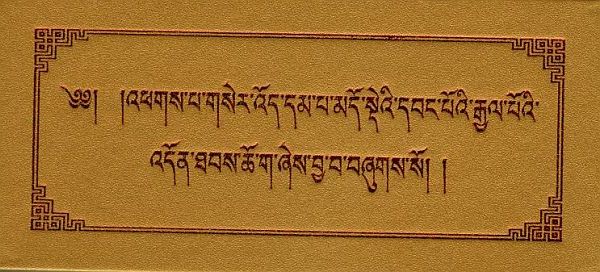 ༄༅། །འཕགས་པ་གསེར་འོད་དམ་པ་མདོ་སྡེའི་དབང་པོའི་རྒྱལ་པོའི་
འདོན་ཐབས་ཆོ་ག་ཞེས་བྱ་བ་བཞུགས་སོ། །